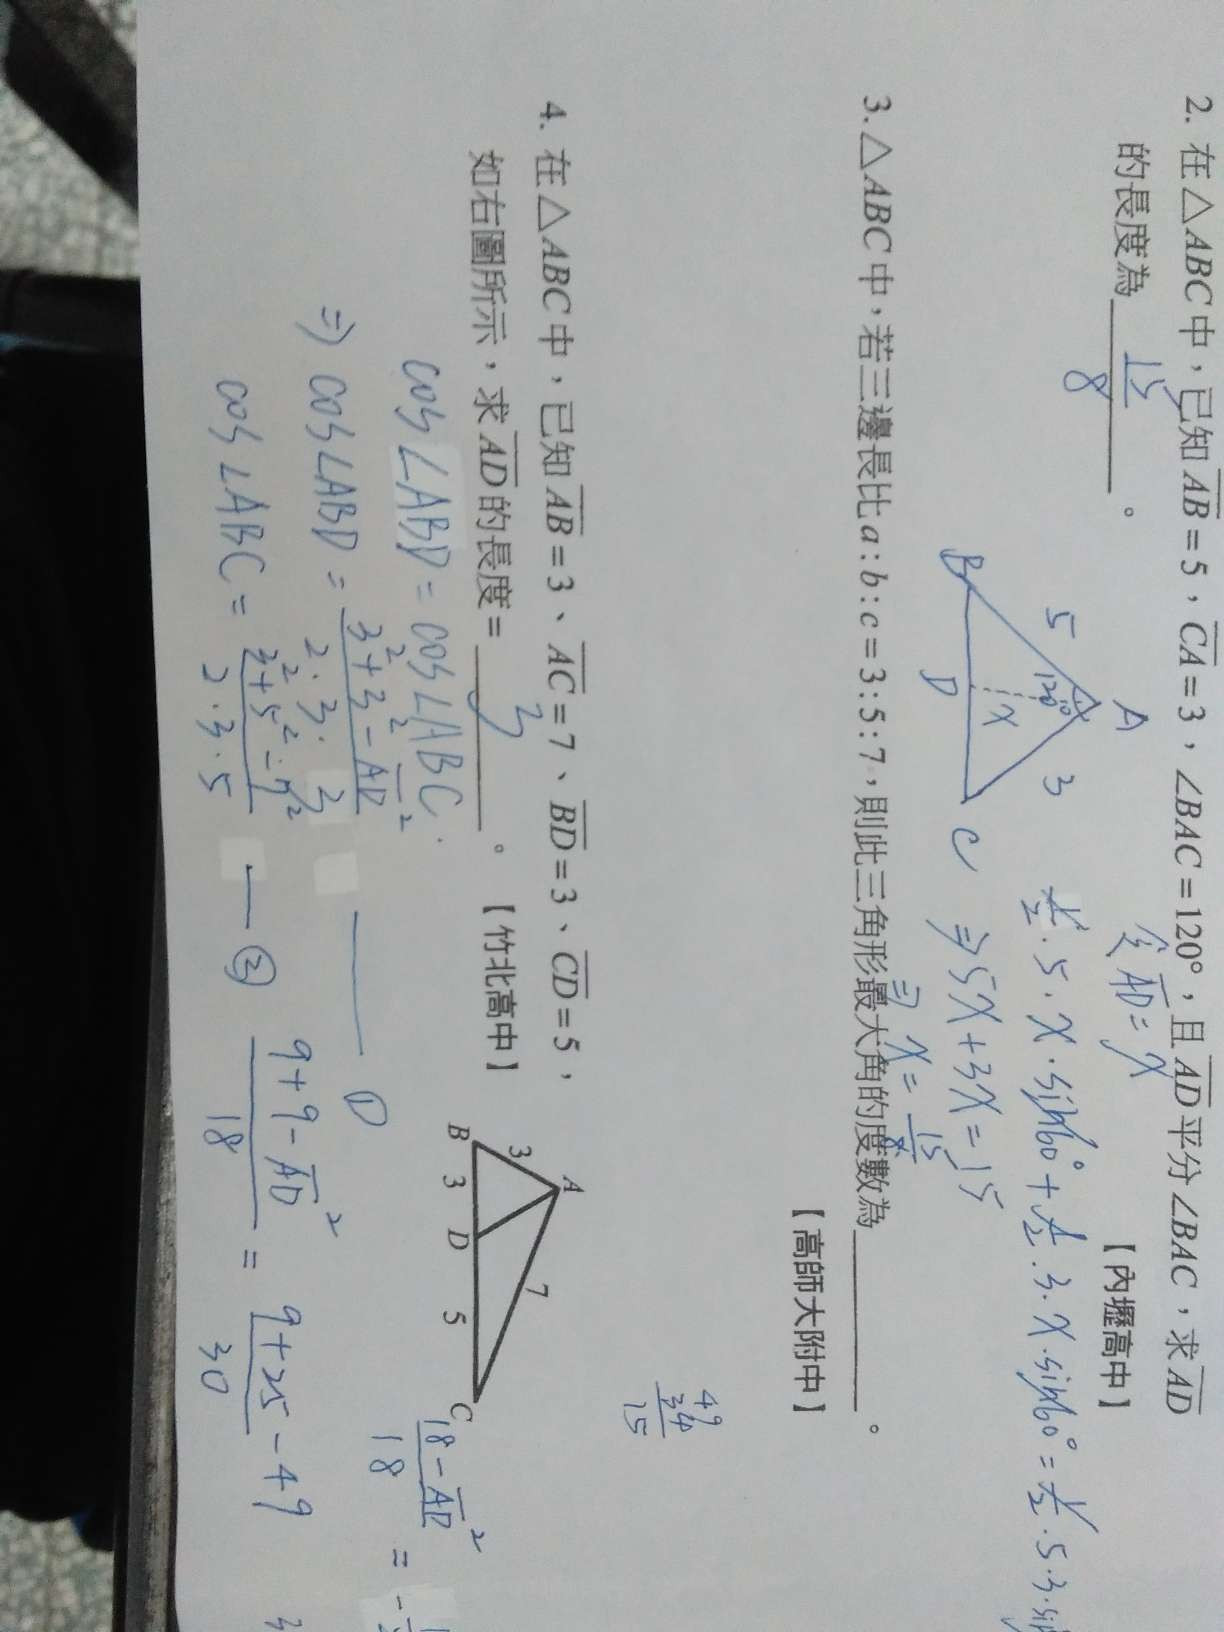 2. 在△ABC中，已知AB=5，CA=3，∠BAC=120°，且AD平分∠BAC，求AD
的長度為 15/8 。 【內壢高中】
令AD=x
1/2·5·x·sin60°+1/2·3·x·sin60°=1/2·5·3·sin
⇒5x+3x=15
⇒x=15/8
A
5
120°
3
x
B
D
C
3. △ABC中，若三邊長比a:b:c=3:5:7，則此三角形最大角的度數為 。
【高師大附中】
49
34
15
4. 在△ABC中，已知AB=3、AC=7、BD=3、CD=5，
如右圖所示，求AD的長度= 。 【竹北高中】
A
3
7
B
3
D
5
C
cos∠ABD=cos∠ABC.
⇒cos∠ABD=(3²+3²-AD²)/(2·3·3) —①
cos∠ABC=(3²+5²-7²)/(2·3·5) —②
(9+9-AD²)/18=(9+25-49)/30
(18-AD²)/18=-